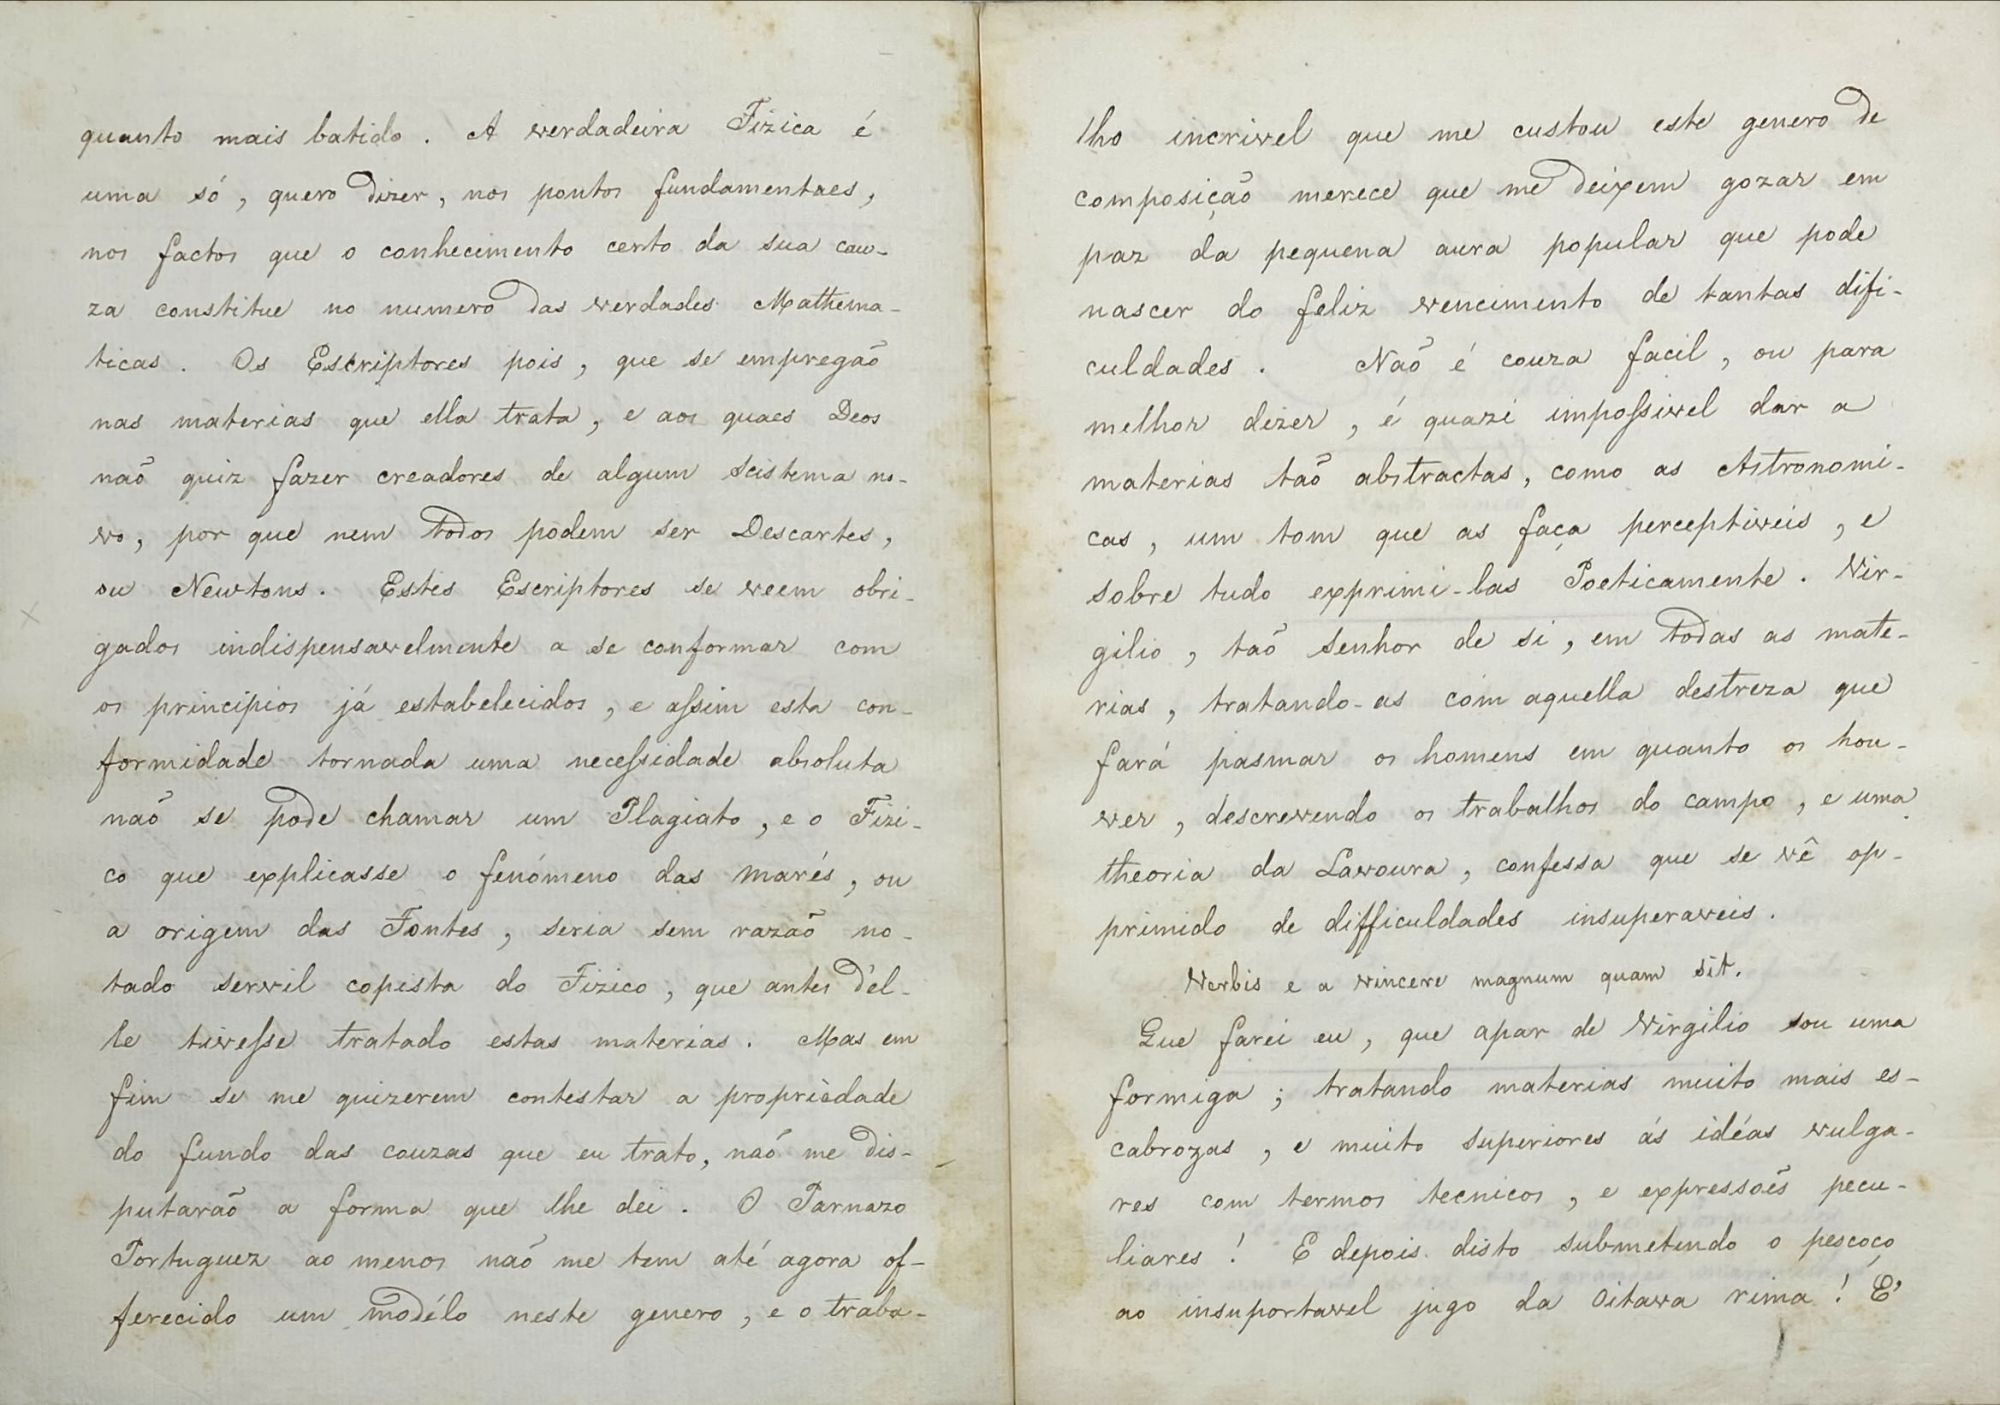 quanto mais batido. A verdadeira Fizica é
uma só, quero dizer, nos pontos fundamentaes,
nos factos que o conhecimento certo da sua cau-
za constitue no numero das verdades Mathema-
ticas. Os Escriptores pois, que se empregaõ
nas materias que ella trata, e aos quaes Deos
naõ quiz fazer creadores de algum scistema no-
vo, por que nem todos podem ser Descartes,
ou Newtons. Estes Escriptores se veem obri-
gados indispensavelmente a se conformar com
os principios já estabelecidos, e aſsim esta con-
formidade tornada uma neceſsidade absoluta
naõ se pode chamar um Plagiato, e o Fizi-
co que explicasse o fenómeno das marés, ou
a origem das Fontes, seria sem razaõ no-
tado servil copista do Fizico, que antes d'el-
le tiveſse tratado estas materias. Mas em
fim se me quizerem contestar a propriedade
do fundo das couzas que eu trato, naõ me dis-
putaraõ a forma que lhe dei. O Parnazo
Portuguez ao menos naõ me tem até agora of-
ferecido um modélo neste genero, e o traba-
lho incrivel que me custou este genero de
composiçaõ merece que me deixem gozar em
paz da pequena aura popular que pode
nascer do feliz vencimento de tantas difi-
culdades. Naõ é couza facil, ou para
melhor dizer, é quazi impoſsivel dar a
materias taõ abstractas, como as Astronomi-
cas, um tom que as faça perceptiveis, e
sobre tudo exprimi-las Poeticamente. Vir-
gilio, taõ senhor de si, em todas as mate-
rias, tratando-as com aquella destreza que
fará pasmar os homens em quanto os hou-
ver, descrevendo os trabalhos do campo, e uma
theoria da Lavoura, confessa que se vê op-
primido de difficuldades insuperaveis.
Verbis e a vincere magnum quam sit.
Que farei eu, que apar de Virgilio sou uma
formiga; tratando materias muito mais es-
cabrozas, e muito superiores ás idéas vulga-
res com termos tecnicos, e expressoẽs pecu-
liares! E depois disto submetendo o pescoço
ao insuportavel jugo da Oitava rima! E'